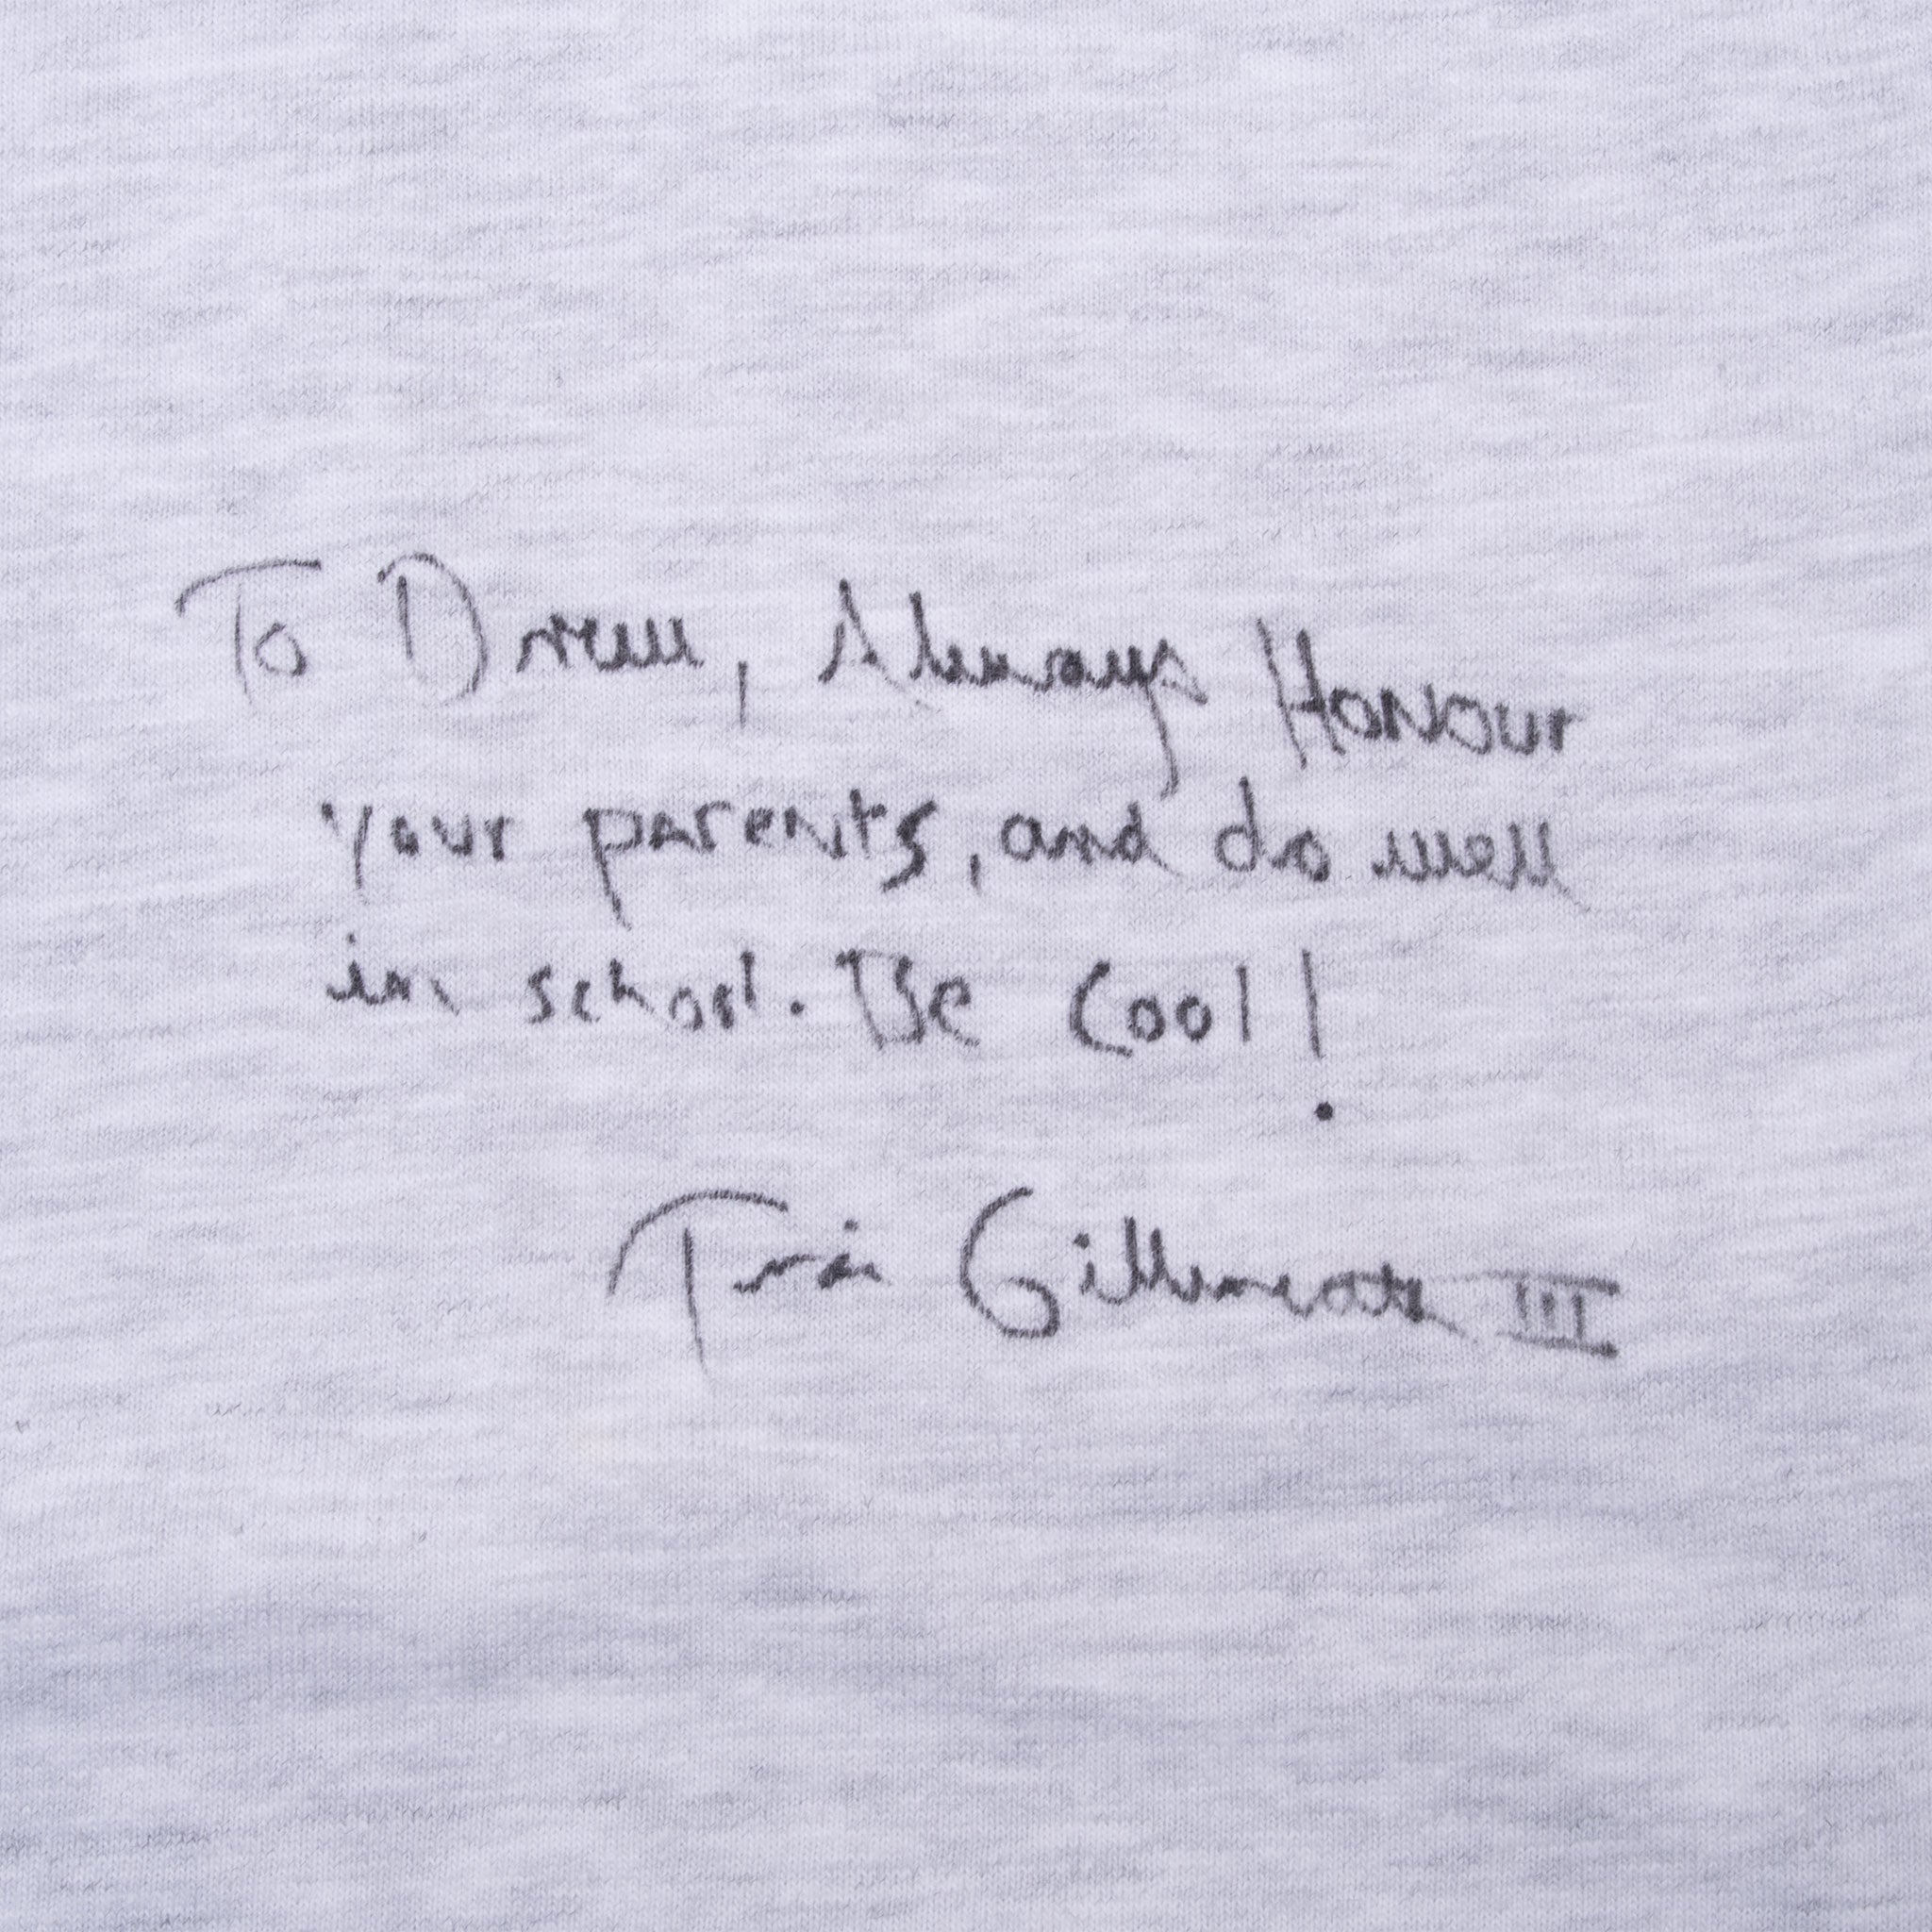 To Drew, Always Honour
your parents, and do well
in school. Be Cool!
III